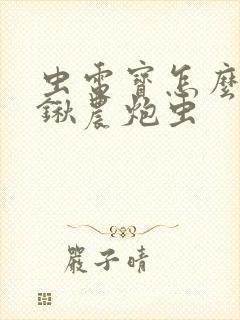 虫電寶怎麼
鍬農炮虫
嚴子晴